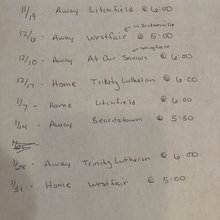 11/19 Away Litchfield @ 6:00
in Jacksonville
12/6 - Away Westfair @ 5:00
springfield
12/10 - Away At Our Saviors @ 6:00
12/17 - Home Trinity Lutheran @ 6:00
1/7 - Home Litchfield @ 6:00
1/14 - Away Beardstown @ 5:30
1/28 - Away Trinity Lutheran @ 6:00
1/31 - Home Westfair @ 5:00